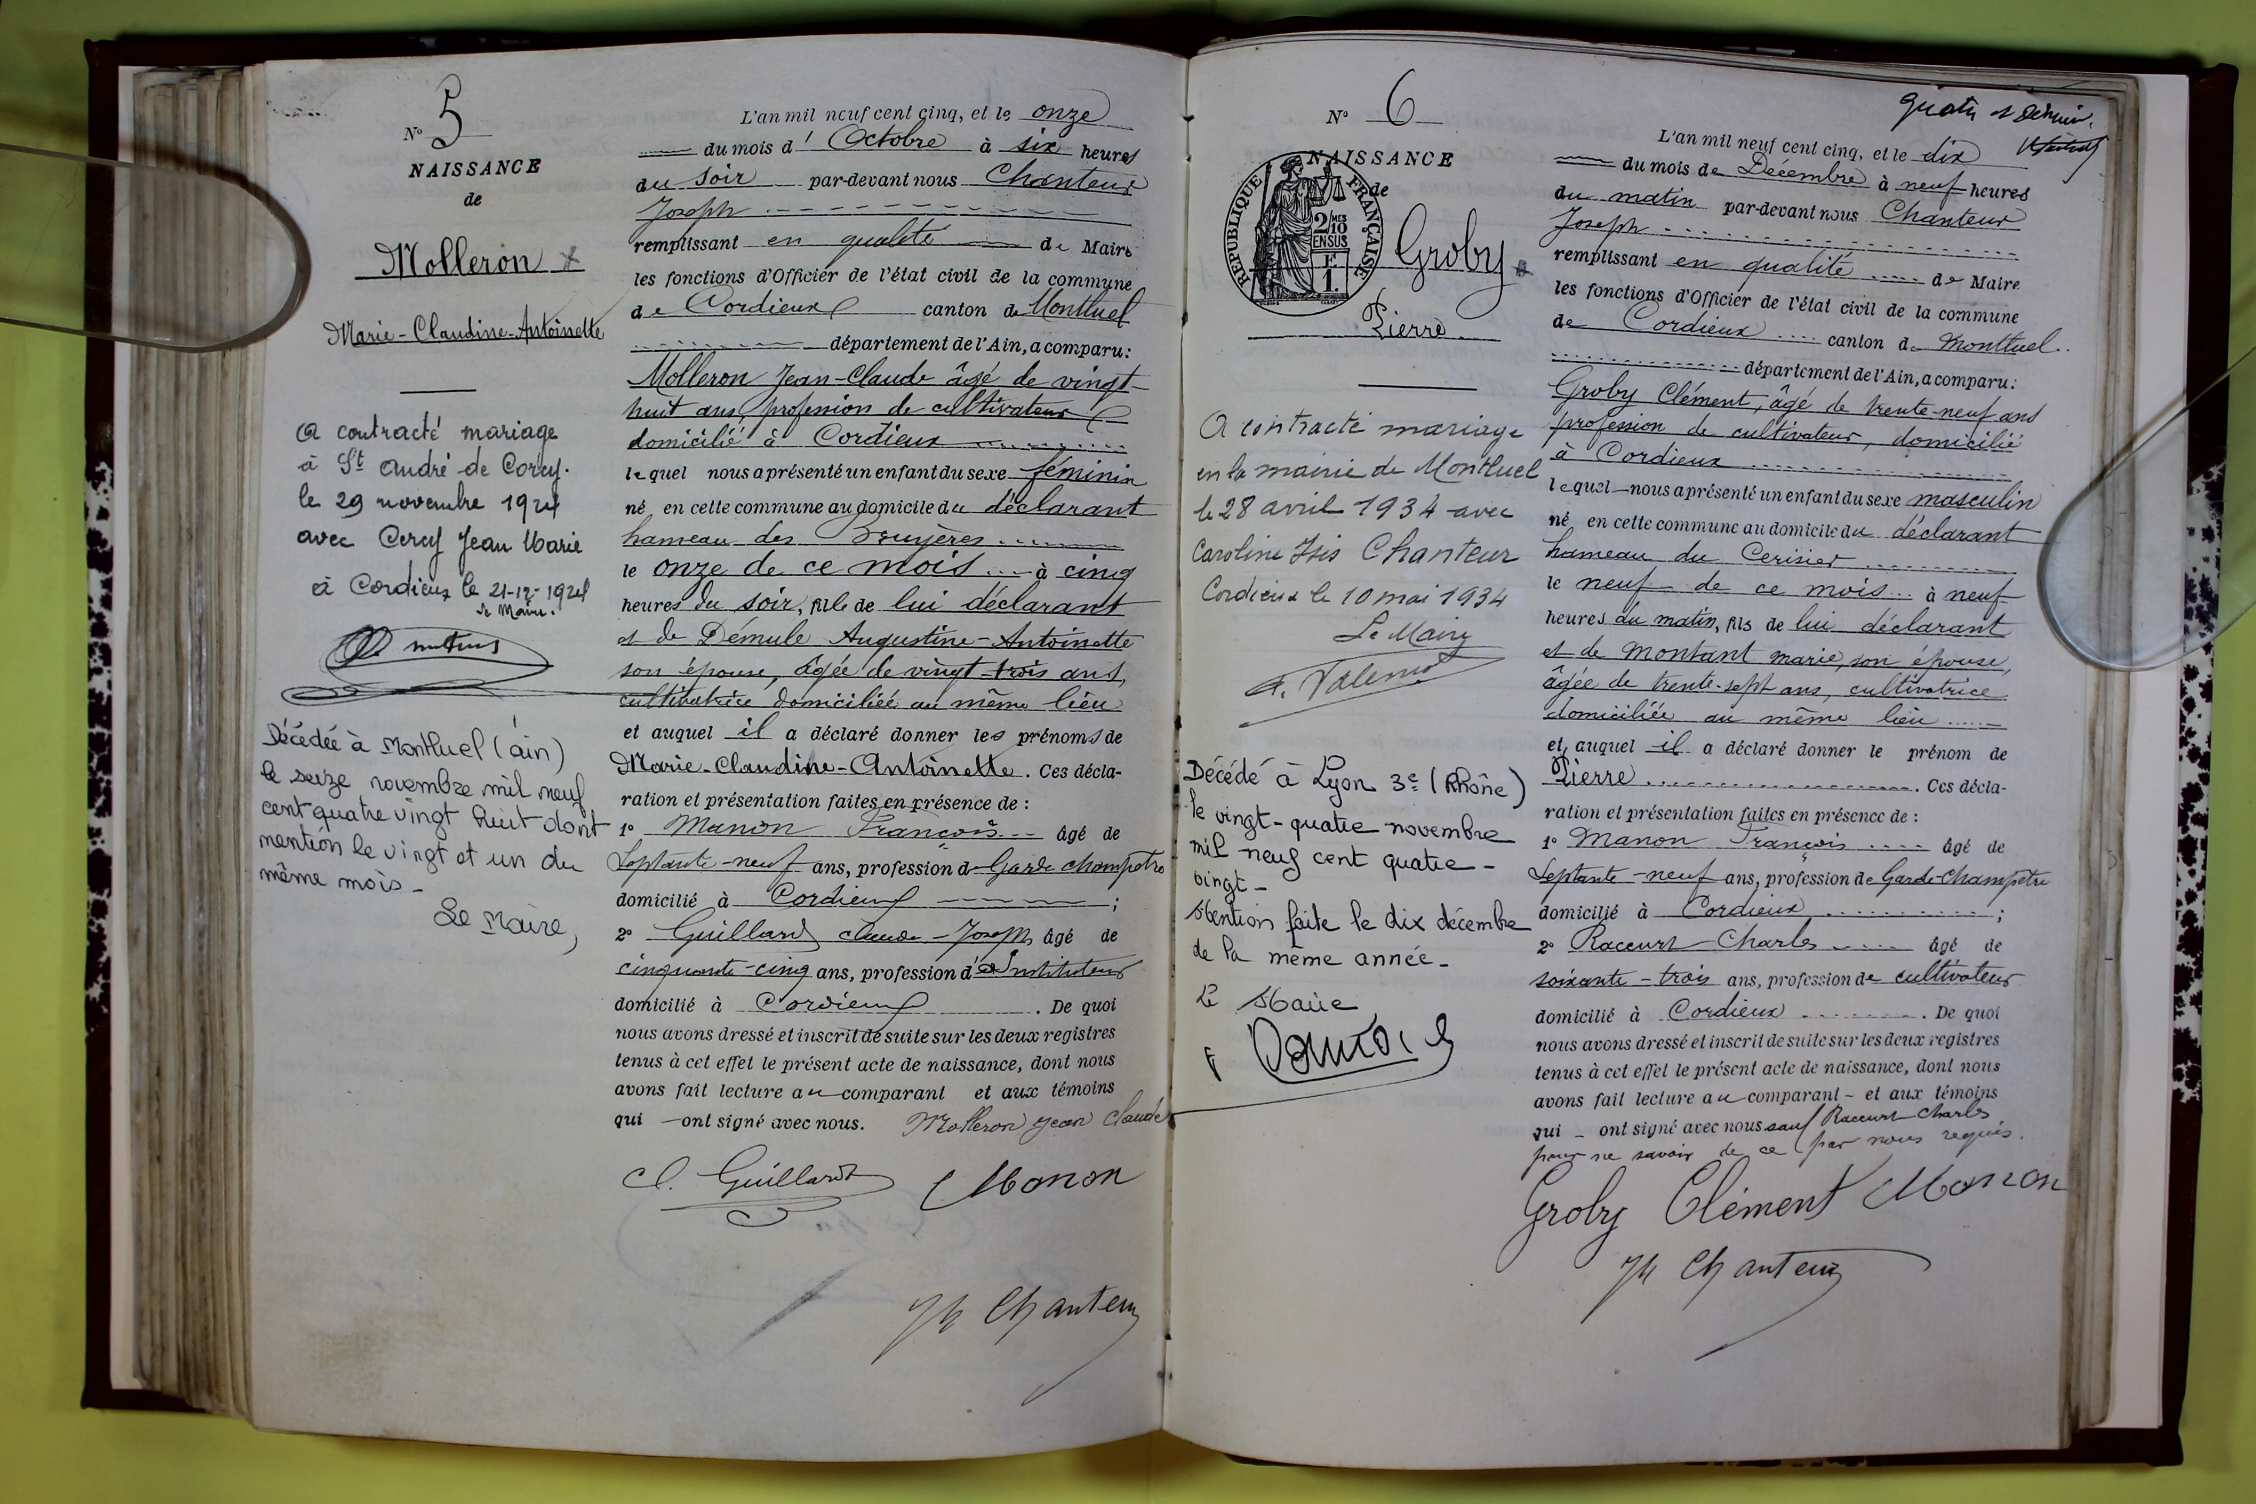 N° 5
NAISSANCE
de
Molleron
Marie-Claudine-Antoinette
A contracté mariage
à St André de Corcy
le 29 novembre 1924
avec Cercy Jean Marie
à Cordieux le 21-12-1924
le Maire.
Décédée à Montluel (Ain)
le seize novembre mil neuf
cent quatre vingt huit dont
mention le vingt et un du
même mois -
Le Maire,
L'an mil neuf cent cinq, et le onze
du mois d' Octobre à six heures
du soir par-devant nous Chanteur
Joseph
remplissant en qualité de Maire
les fonctions d'Officier de l'état civil de la commune
de Cordieux canton de Montluel
département de l'Ain, a comparu:
Molleron Jean-Claude âgé de vingt-
huit ans, profession de cultivateur
domicilié à Cordieux
lequel nous a présenté un enfant du sexe féminin
né en cette commune au domicile du déclarant
hameau des Bruyères
le onze de ce mois à cinq
heures du soir, fille de lui déclarant
et de Démule Augustine-Antoinette
son épouse, âgée de vingt-trois ans,
cultivatrice domiciliée au même lieu
et auquel il a déclaré donner les prénoms de
Marie-Claudine-Antoinette. Ces décla-
ration et présentation faites en présence de :
1° Manon François âgé de
Septante-neuf ans, profession de Garde champêtre
domicilié à Cordieux ;
2° Guillard Claude-Joseph, âgé de
cinquante-cinq ans, profession d'Instituteur
domicilié à Cordieux . De quoi
nous avons dressé et inscrit de suite sur les deux registres
tenus à cet effet le présent acte de naissance, dont nous
avons fait lecture au comparant et aux témoins
qui ont signé avec nous. Molleron Jean Claude
C. Guillard Manon
Jh Chanteur
N° 6
NAISSANCE
de
RÉPUBLIQUE FRANÇAISE
2/10 MES
EN SUS
1 F.
Groby
Pierre
A contracté mariage
en la mairie de Montluel
le 28 avril 1934 avec
Caroline Isis Chanteur
Cordieux le 10 mai 1934
Le Maire
Décédé à Lyon 3e (Rhône)
le vingt-quatre novembre
mil neuf cent quatre-
vingt -
Mention faite le dix décembre
de la même année -
Le Maire
L'an mil neuf cent cinq, et le dix
du mois de Décembre à neuf heures
du matin par-devant nous Chanteur
Joseph
remplissant en qualité de Maire
les fonctions d'Officier de l'état civil de la commune
de Cordieux canton de Montluel
département de l'Ain, a comparu:
Groby Clément, âgé de trente-neuf ans
profession de cultivateur, domicilié
à Cordieux
lequel nous a présenté un enfant du sexe masculin
né en cette commune au domicile du déclarant
hameau du Cerisier
le neuf de ce mois à neuf
heures du matin, fils de lui déclarant
et de Montant Marie, son épouse,
âgée de trente-sept ans, cultivatrice
domiciliée au même lieu
et auquel il a déclaré donner le prénom de
Pierre . Ces décla-
ration et présentation faites en présence de :
1° Manon François âgé de
Septante-neuf ans, profession de Garde-Champêtre
domicilié à Cordieux ;
2° Raccurt Charles âgé de
soixante-trois ans, profession de cultivateur
domicilié à Cordieux . De quoi
nous avons dressé et inscrit de suite sur les deux registres
tenus à cet effet le présent acte de naissance, dont nous
avons fait lecture au comparant - et aux témoins
qui - ont signé avec nous sauf Raccurt Charles
pour ne savoir de ce par nous requis.
Groby Clément Manon
Jh Chanteur